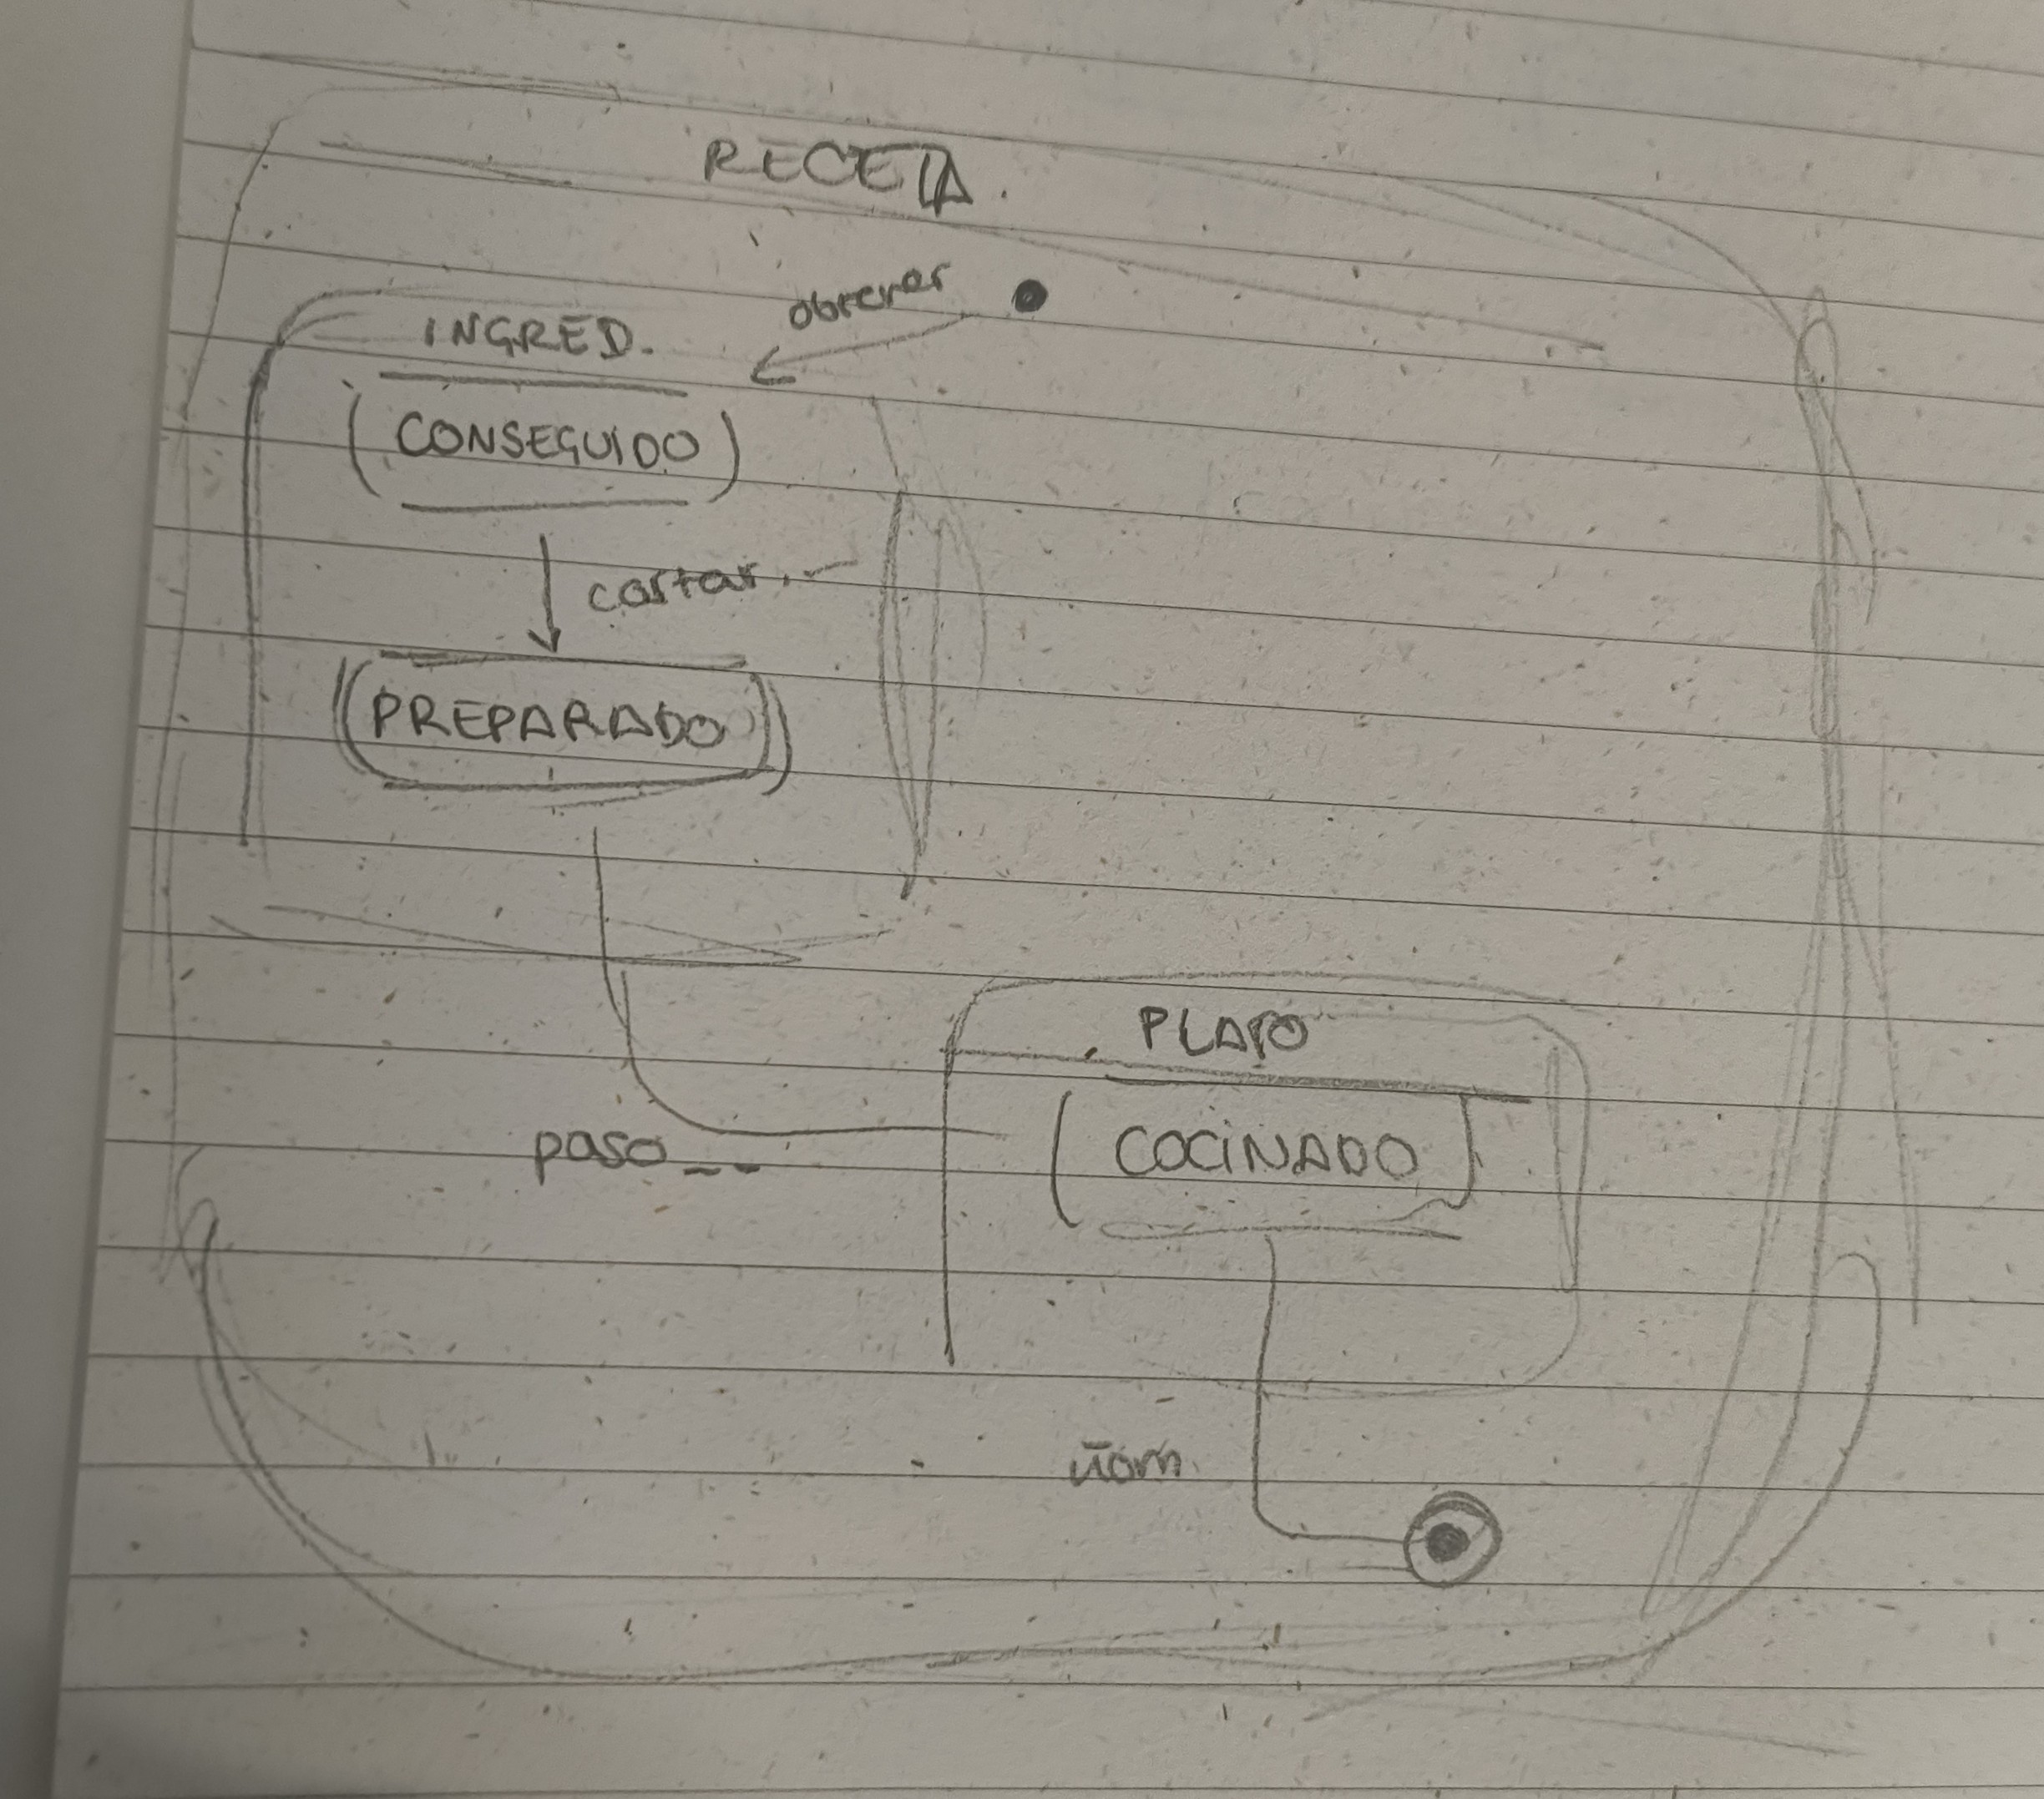 RECETA.
obtener
INGRED.
CONSEGUIDO
cortar.
PREPARADO
PLATO
COCINADO
paso
ñom